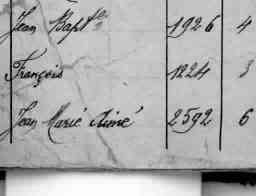 Jean Bapt^te 1926 4
François 1224 3
Jean Marie Aimé 2592 6